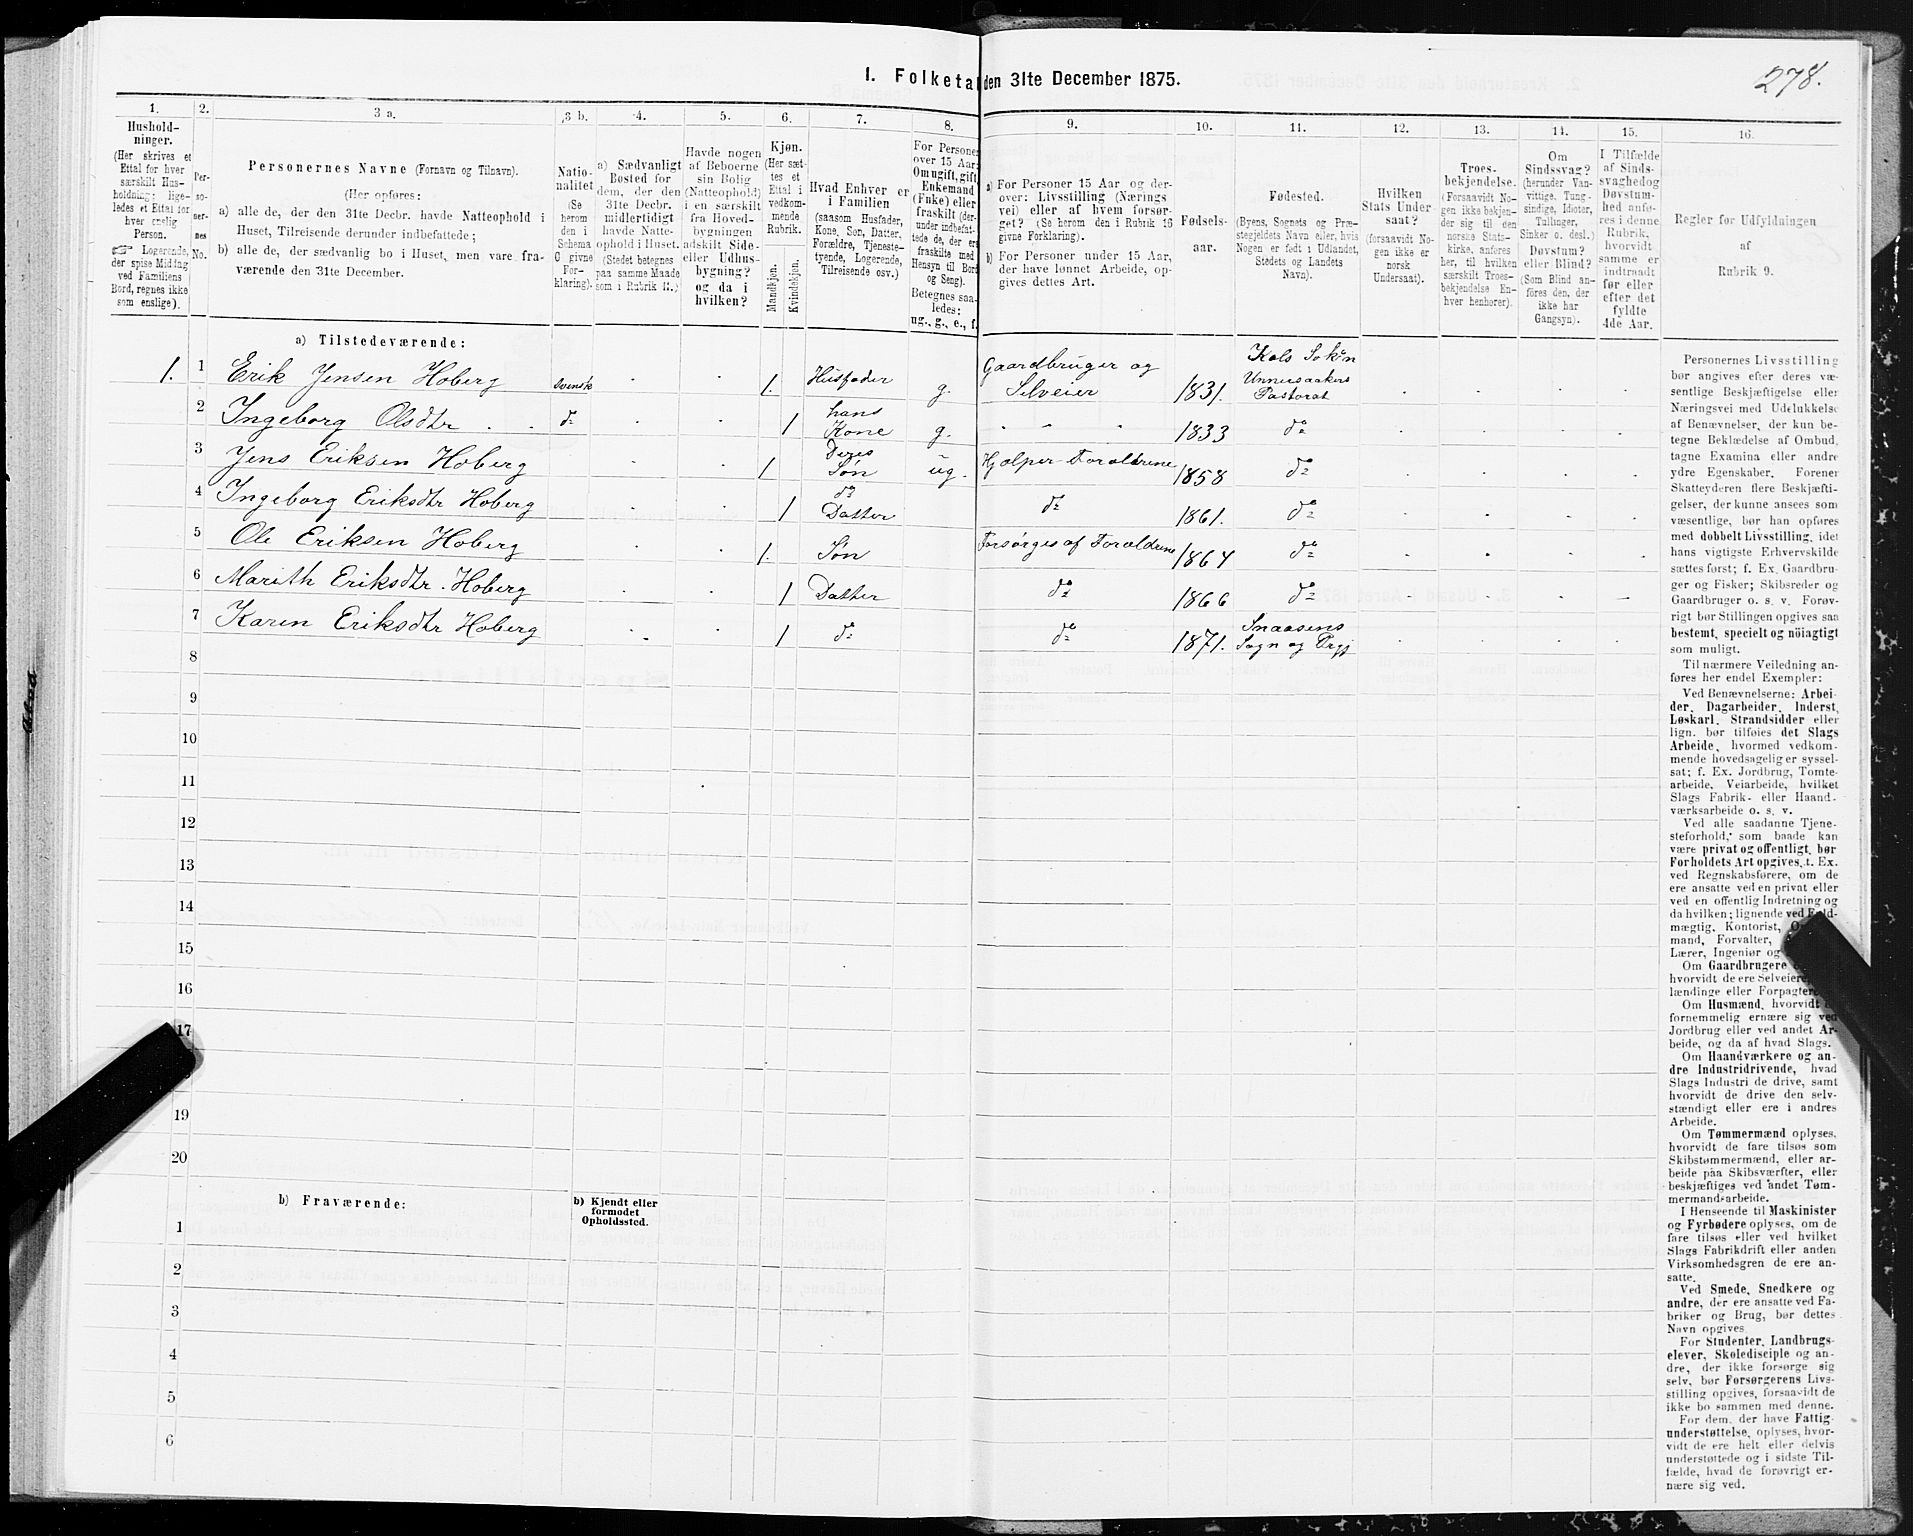 I. Folketal den 31te December 1875.
278.
1. 2. 3 a. 3 b. 4. 5. 6. 7. 8. 9. 10. 11. 12. 13. 14. 15. 16.
Hushold-
ninger.
(Her skrives et
Ettal for hver
særskilt Hus-
holdning; lige-
ledes et Ettal for
hver enslig
Person.
☞ Logerende,
der spise Middag
ved Familiens
Bord, regnes ikke
som enslige).
Per-
so-
ner-
nes
No.
Personernes Navne (Fornavn og Tilnavn).
(Her opføres:
a) alle de, der den 31te Decbr. havde Natteophold i
Huset, Tilreisende derunder indbefattede;
b) alle de, der sædvanlig bo i Huset, men vare fra-
værende den 31te December.
Natio-
nalitet
(Se
herom
den i
Schema
O givne
For-
klaring).
a) Sædvanligt
Bosted for
dem, der den
31te Decbr.
midlertidigt
havde Natte-
ophold i Huset.
(Stedet betegnes
paa samme Maade
som i Rubrik 11.)
Havde nogen
af Beboerne
sin Bolig
(Natteophold)
i en særskilt
fra Hoved-
bygningen
adskilt Side-
eller Udhus-
bygning?
og da i
hvilken?
Kjøn.
(Her sæt-
tes et
Ettal i
vedkom-
mende
Rubrik.
Mandkjøn.
Kvindekjøn.
Hvad Enhver er
i Familien
(saasom Husfader,
Kone, Søn, Datter,
Forældre, Tjeneste-
tyende, Logerende,
Tilreisende osv.)
For Personer
over 15 Aar:
Om ugift, gift,
Enkemand
(Enke) eller
fraskilt (der-
under indbefat-
tede de, der ere
fraskilte med
Hensyn til Bord
og Seng).
Betegnes saa-
ledes:
ug., g., e., f.
a) For Personer 15 Aar og der-
over: Livsstilling (Nærings
vei) eller af hvem forsør-
get? (Se herom den i Rubrik 16
givne Forklaring).
b) For Personer under 15 Aar,
der have lønnet Arbeide, op-
gives dettes Art.
Fødsels-
aar.
Fødested.
(Byens, Sognets og Præ-
stegjeldets Navn eller, hvis
Nogen er født i Udlandet,
Stedets og Landets
Navn).
Hvilken
Stats Under-
saat?
(forsaavidt No-
gen ikke er
norsk
Undersaat).
Troes-
bekjendelse.
(Forsaavidt No-
gen ikke bekjen-
der sig til den
norske Stats-
kirke, anføres
her, til hvilken
særskilt Troes-
bekjendelse En-
hver henhører).
Om
Sindssvag?
(herunder Van-
vittige, Tung-
sindige, Idioter,
Tullinger,
Sinker o. desl.)
Døvstum?
eller Blind?
(Som Blind an-
føres den, der
ikke har
Gangsyn).
I Tilfælde
af Sinds-
svaghed og
Døvstum-
hed anfø-
res i denne
Rubrik,
hvorvidt
samme er
indtraadt
før eller
efter det
fyldte
4de Aar.
Regler for Udfyldningen
af
Rubrik 9.
a) Tilstedeværende:
1. 1 Erik Jensen Hoberg svensk 1. Husfader g. Gaardbruger og Selveier 1831. Kols Sokn Undersaakers Pastorat
2 Ingeborg Olsdtr do 1 hans Kone g. 1833 do
3 Jens Eriksen Hoberg 1 Deres Søn ug. Hjælper Forældrene 1858 do
4 Ingeborg Eriksdtr Hoberg 1 do Datter do 1861. do
5 Ole Eriksen Hoberg 1. Søn Forsørges af Forældrene 1864 do
6 Marith Eriksdtr. Hoberg 1 Datter do 1866 do
7 Karen Eriksdtr Hoberg 1 do do 1871. Snaasens Sogn og Prgj
8
9
10
11
12
13
14
15
16
17
19
20
b) Fraværende:
b) Kjendt eller
formodet
Opholdssted.
1
2
3
4
5
6
Personernes Livsstilling
bør angives efter deres væ-
sentlige Beskjæftigelse eller
Næringsvei med Udelukkelse
af Benævnelser, der kun be-
tegne Beklædelse af Ombud,
tagne Examina eller andre
ydre Egenskaber. Forener
Skatteyderen flere Beskjæfti-
gelser, der kunne ansees som
væsentlige, bør han opføres
med dobbelt Livsstilling, idet
hans vigtigste Erhvervskilde
sættes først; f. Ex. Gaardbru-
ger og Fisker; Skibsreder og
Gaardbruger o. s. v. Forøv-
rigt bør Stillingen opgives saa
bestemt, specielt og nöiagtigt
som muligt.
Til nærmere Veiledning an-
føres her endel Exempler:
Ved Benævnelserne: Arbei-
der, Dagarbeider, Inderst,
Løskarl, Strandsidder eller
lign. bør tilføies det Slags
Arbeide, hvormed vedkom-
mende hovedsagelig er syssel-
sat; f. Ex. Jordbrug, Tomte-
arbeide, Veiarbeide, hvilket
Slags Fabrik- eller Haand-
værksarbeide o. s. v.
Ved alle saadanne Tjene-
steforhold, som baade kan
være privat og offentligt, bør
Forholdets Art opgives, t. Ex.
ved Regnskabsførere, om de
ere ansatte ved en privat eller
ved en offentlig Indretning og
da hvilken; lignende ved Fuld-
mægtig, Kontorist,
mand, Forvalter,
Lærer, Ingeniør og
Om Gaardbrugere
hvorvidt de ere Selveiere,
lændinge eller Forpagtere.
Om Husmænd, hvorvidt
fornemmelig ernære sig ved
Jordbrug eller ved andet Ar-
beide, og da af hvad Slags.
Om Haandværkere og an-
dre Industridrivende, hvad
Slags Industri de drive, samt
hvorvidt de drive den selv-
stændigt eller ere i andres
Arbeide.
Om Tømmermænd oplyses,
hvorvidt de fare tilsøs som
Skibstømmermænd, eller ar-
beide paa Skibsværfter, eller
beskjæftiges ved andet Tøm-
mermandsarbeide.
I Henseende til Maskinister
og Fyrbødere oplyses, om de
fare tilsøs eller ved hvilket
Slags Fabrikdrift eller anden
Virksomhedsgren de ere an-
satte.
Ved Smede, Snedkere og
andre, der ere ansatte ved Fa-
briker og Brug, bør dettes
Navn opgives.
For Studenter, Landbrugs-
elever, Skoledisciple og an-
dre, der ikke forsørge sig
selv, bør Forsørgerens Livs-
stilling opgives, forsaavidt de
ikke bo sammen med denne.
For dem, der have Fattig-
understøttelse, oplyses, hvor-
vidt de ere helt eller delvis
understøttede og i sidste Til-
fælde, hvad de forøvrigt er-
nære sig ved.